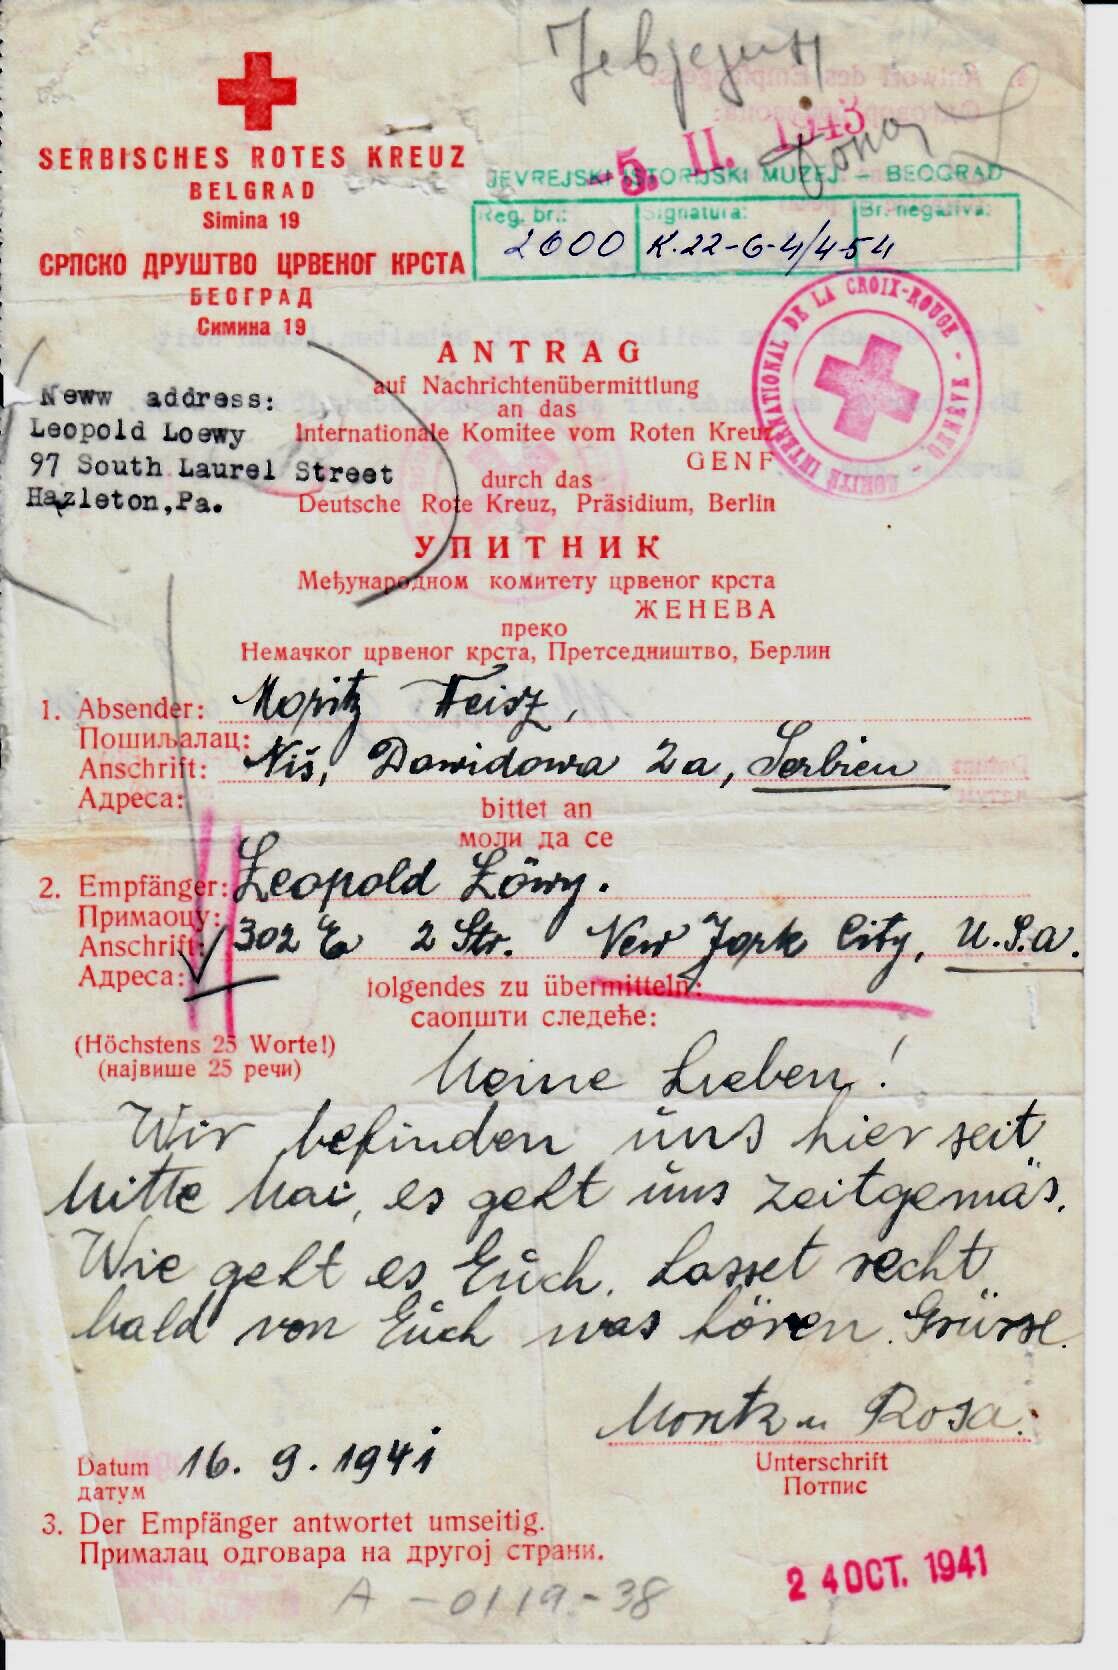 -5. II. 1943
SERBISCHES ROTES KREUZ
BELGRAD
Simina 19
СРПСКО ДРУШТВО ЦРВЕНОГ КРСТА
БЕОГРАД
Симина 19
JEVREJSKI ISTORIJSKI MUZEJ – BEOGRAD
Reg. br.: Signatura: Br. negativa:
2600 K.22-6-4/4-54
COMITÉ INTERNATIONAL DE LA CROIX-ROUGE - GENÈVE -
Neww address:
Leopold Loewy
97 South Laurel Street
Hazleton,Pa.
ANTRAG
auf Nachrichtenübermittlung
an das
Internationale Komitee vom Roten Kreuz
GENF
durch das
Deutsche Rote Kreuz, Präsidium, Berlin
УПИТНИК
Међународном комитету црвеног крста
ЖЕНЕВА
преко
Немачког црвеног крста, Претседништво, Берлин
1. Absender: Moritz Weisz,
Пошиљалац:
Anschrift: Niš, Dawidowa 2a, Serbien
Адреса:
bittet an
моли да се
2. Empfänger: Leopold Löwy.
Примаоцу:
Anschrift: 302 E 2 Str. New York City, U.S.a.
Адреса:
folgendes zu übermitteln:
саопшти следеће:
(Höchstens 25 Worte!)
(највише 25 речи)
Meine Lieben!
Wir befinden uns hier seit
Mitte Mai, es geht uns zeitgemäs.
Wie geht es Euch. Lasset recht
bald von Euch was hören. Grüsse
Moritz u Rosa.
Datum 16. 9. 1941
датум
Unterschrift
Потпис
3. Der Empfänger antwortet umseitig.
Прималац одговара на другој страни.
A-0119-38
24 OCT. 1941